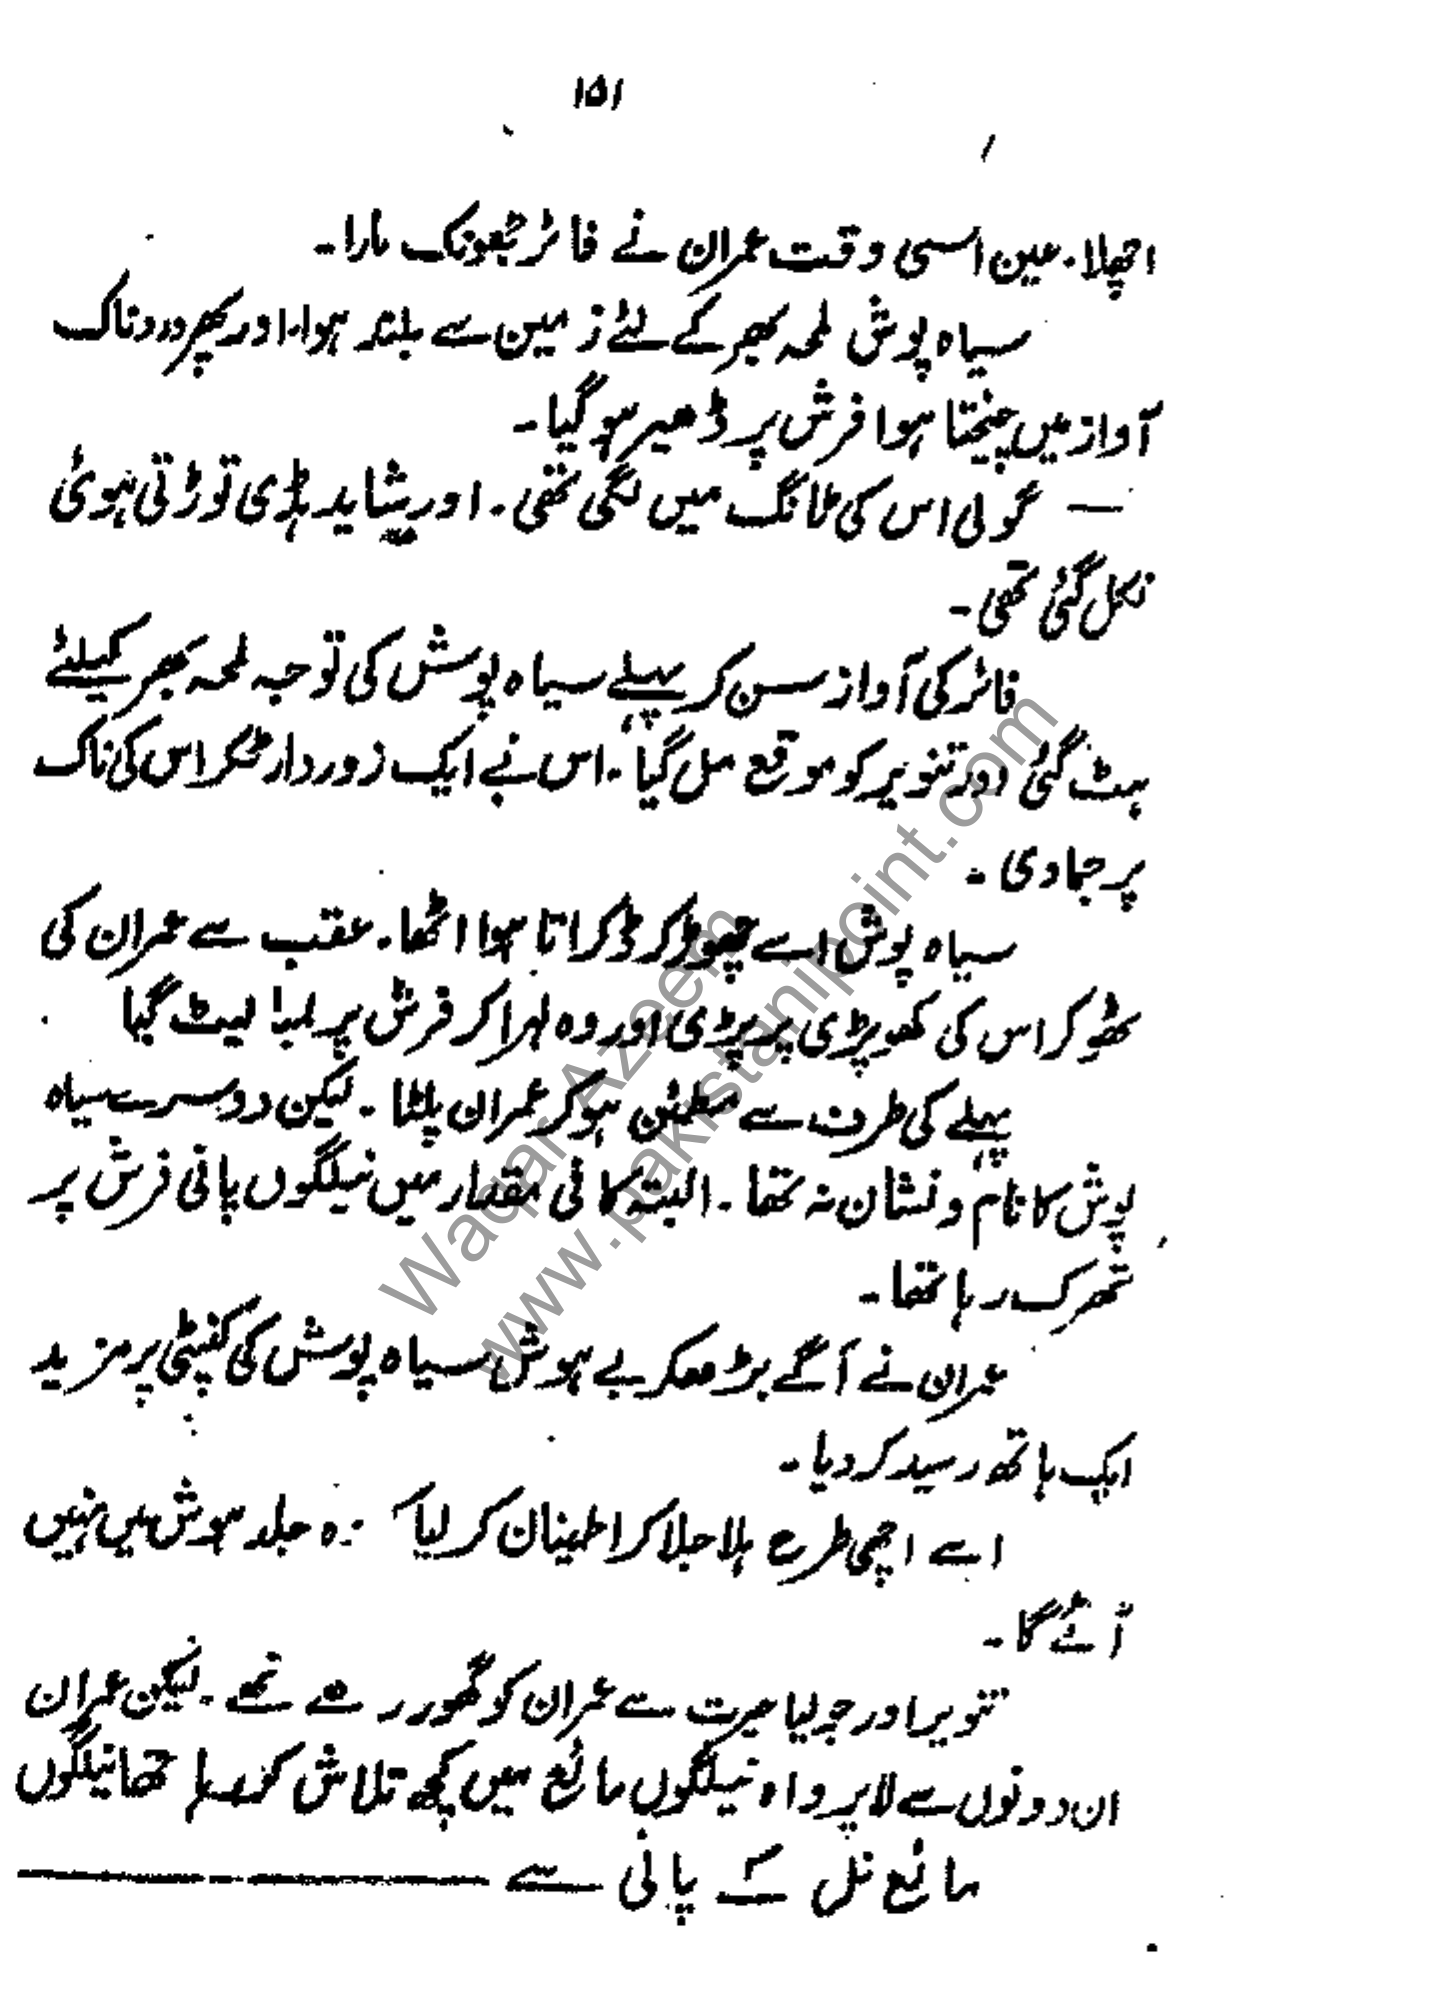 ۱۵۱
اچھلا۔ عین اسی وقت عمران نے فائر جھونک مارا۔
سیاہ پوش لمحہ بھر کے لئے زمین سے بلند ہوا۔ اور پھر دردناک
آواز میں چیختا ہوا فرش پر ڈھیر ہو گیا۔
— گولی اس کی ٹانگ میں لگی تھی۔ اور شاید ہڈی توڑتی ہوئی
نکل گئی تھی۔
فائر کی آواز سن کر پہلے سیاہ پوش کی توجہ لمحہ بھر کیلئے
ہٹ گئی اور تنویر کو موقع مل گیا۔ اس نے ایک زور دار ٹکر اس کی ناک
پر جما دی۔
سیاہ پوش اسے چھوڑ کر ڈکراتا ہوا اٹھا۔ عقب سے عمران کی
ٹھوکر اس کی کھوپڑی پر پڑی اور وہ لہرا کر فرش پر لمبا لیٹ گیا
پہلے کی طرف سے مطمئن ہو کر عمران پلٹا۔ لیکن دوسرے سیاہ
پوش کا نام و نشان نہ تھا۔ البتہ کافی مقدار میں نیلگوں پانی فرش پر
تھرک رہا تھا۔
عمران نے آگے بڑھ کر بے ہوش سیاہ پوش کی کنپٹی پر مزید
ایک ہاتھ رسید کر دیا۔
اسے اچھی طرح ہلا جلا کر اطمینان کر لیا کہ وہ جلد ہوش میں نہیں
آئے گا۔
تنویر اور جولیا حیرت سے عمران کو گھور رہے تھے۔ لیکن عمران
ان دونوں سے لاپرواہ نیلگوں مائع میں کچھ تلاش کر رہا تھا نیلگوں
مائع نل کے پانی سے ————
Waqar Azeem
www.pakistanipoint.com